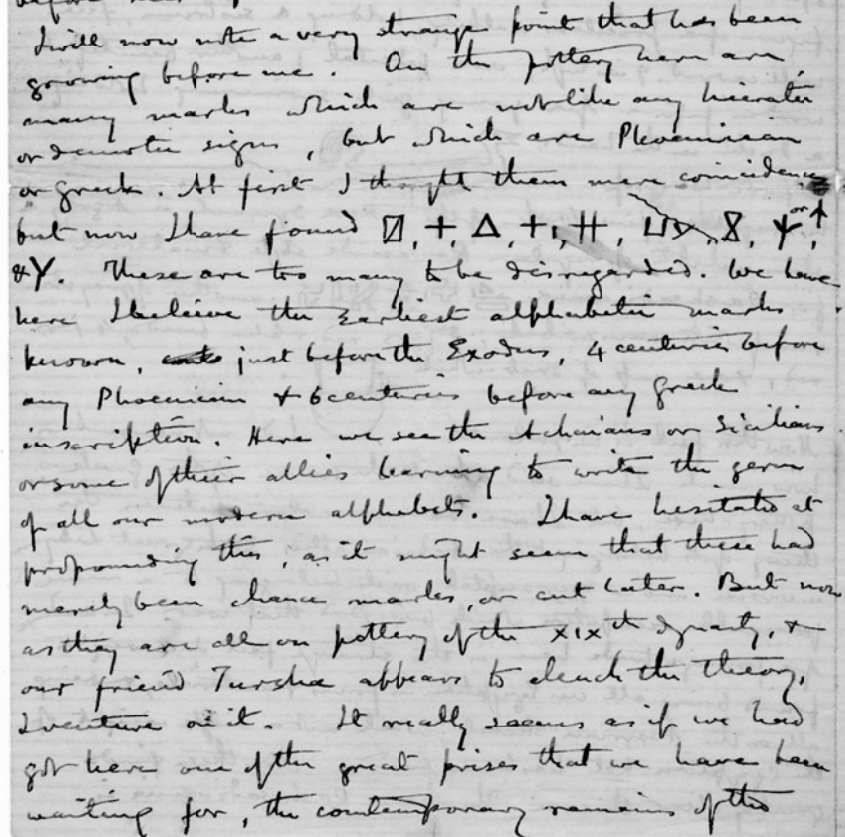 I will now note a very strange point that has been
growing before me. On the pottery here are
many marks which are not like any hieratic
or demotic signs, but which are Phoenician
or greek. At first I thought them mere coincidences
but now I have found +, Δ, +, or ↑,
& Y. These are too many to be disregarded. We have
here I beleive the earliest alphabetic marks
known, just before the Exodus, 4 centuries before
any Phoenician & 6 centuries before any greek
inscription. Here we see the Achaians or Sicilians
or some of their allies learning to write the germ
of all our modern alphabets. I have hesitated at
propounding this, as it might seem that these had
merely been chance marks, or cut later. But now
as they are all on pottery of the XIXth dynasty, &
our friend Tursha appears to clench the theory,
I venture on it. It really seems as if we had
got here one of the great prizes that we have been
waiting for, the contemporary remains of the